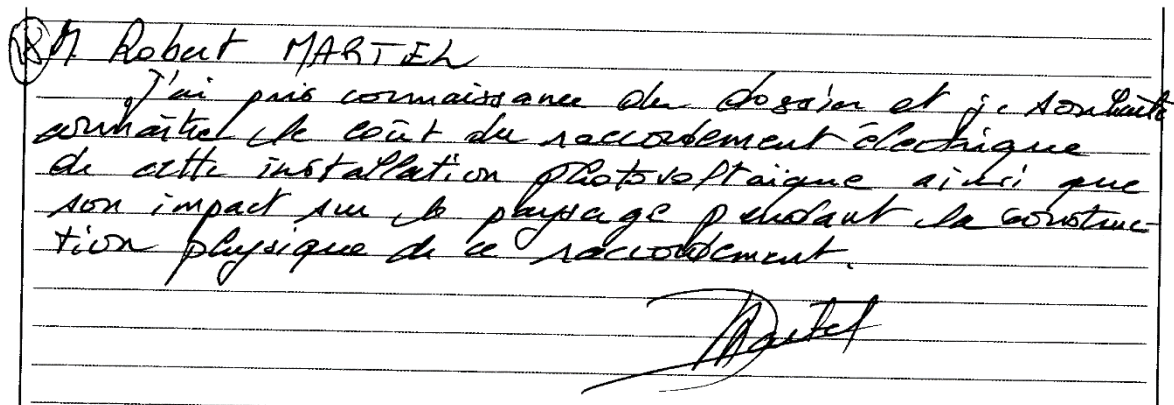 M. Robert MARTEL
J'ai pris connaissance du dossier et je souhaite
connaître le coût du raccordement électrique
de cette installation photovoltaïque ainsi que
son impact sur le paysage pendant la construc-
tion physique de ce raccordement.
Martel